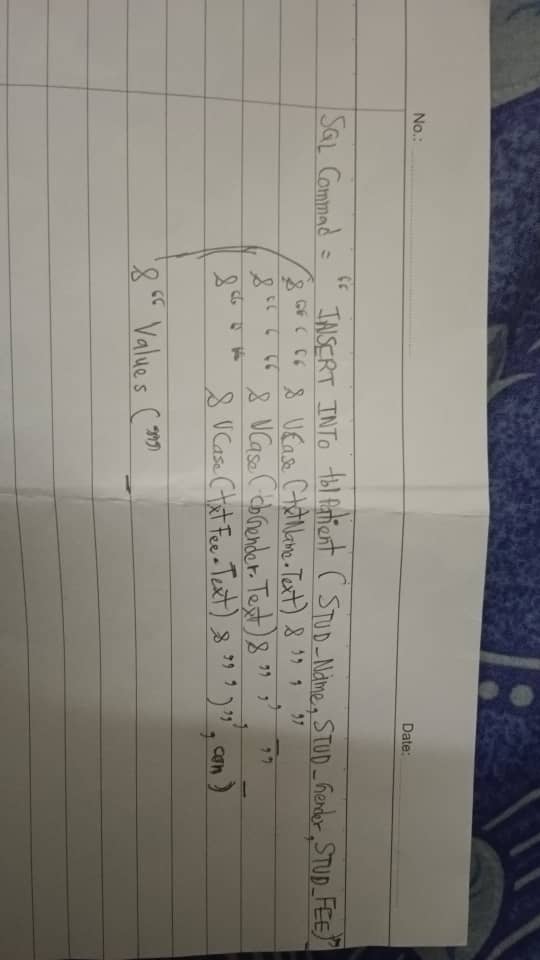 No.: Date:
SQL Commad = " INSERT INTO tblPatient ( STUD_Name, STUD_Gender, STUD_FEE)" _
& " ' " & UCase (txtName.Text) & " ' , "
& " ' " & UCase (cbGender.Text) & " ' , " _
& " ' " & UCase (txtFee.Text) & " ' ) " , con) _
& " Values ( " _